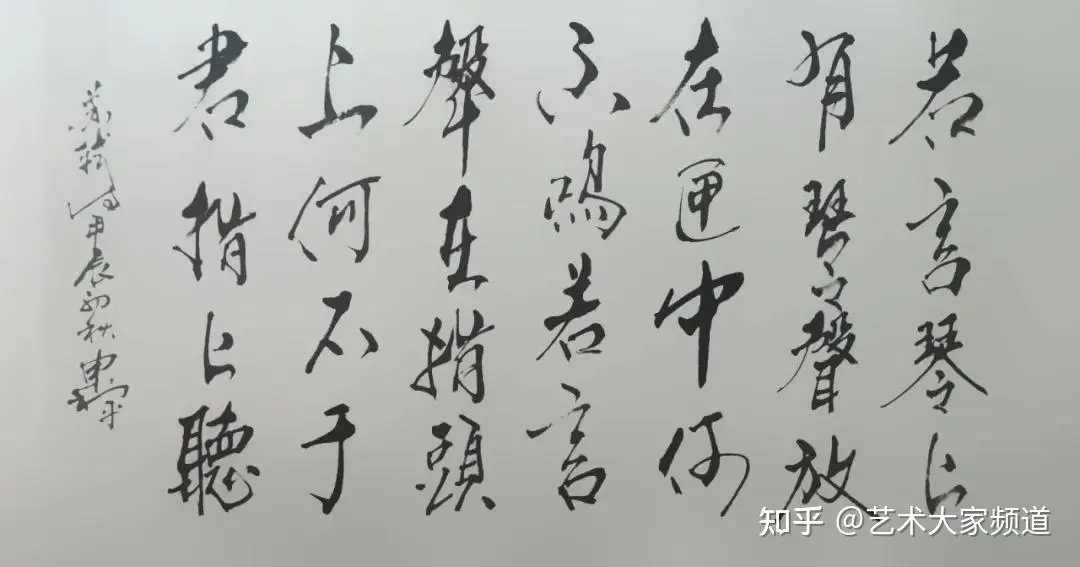 若言琴上
有琴聲放
在匣中何
不鳴若言
聲在指頭
上何不于
君指上聽
蘇軾詩甲辰初秋
知乎 @艺术大家频道